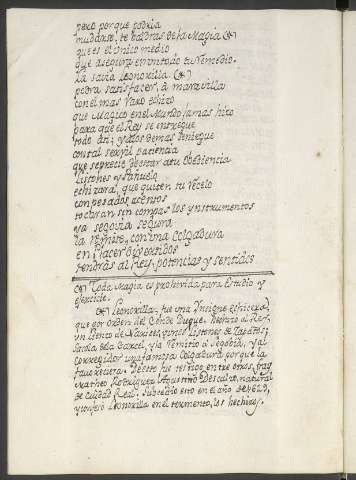 pero porque podria
mudarse, te valdras de la Magia (*)
que es el unico medio
que asegura en un todo tu remedio.
La savia Leonorilla (*)
podra satisfacer, à maravilla
con el mas raro echizo
que Magico en el Mundo jamas hizo
para que el Rey se entregue
todo à ti; y a los demas
con tal servil
que se precie de estar a tu obediencia
Listones y Pañuelo
echizara, que quiten tu recelo
con pesados acentos
tocaran sin compas los ynstrumentos
ya segovia segura
la remite, con una Colgadura
en Placer divertidos
tendràs al Rey, potencias y sentidos

(*) Toda Magia es prohivida para Estudio y
exercicio.
(*) Leonorilla, fue una Ynsigne echicera,
que por orden del Conde Duque, hechizo al Rey
un Lienzo de Narices, y unos Listones de Zapatos;
Sacola de la Carcel, y la remitio al Segobia, y al
Corregidor una famosa Colgadura porque la
favoreciera. De esto fue testigo entre otros, fray
Matheo Rodriguez Agustino Descalzo, natural
de Ciudad Real. Subcedio esto en el año de 1623,
y confeso Leonorilla en el tormento, los hechizos.